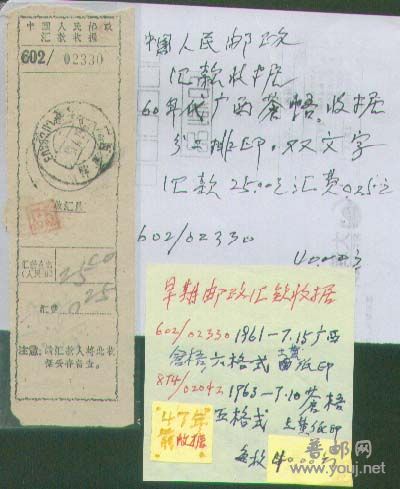 中國人民邮政
汇款收据
602/ 02330
收汇员
汇款金額
(人民币)
25 00
汇费
0 25
注意：請汇款人將此收
据妥存备查。
中国人民邮政
汇款收据
60年代广西苍梧.收据
排印.双文字
汇款25.00元汇费.0.25元
602/02330
早期邮政汇款收据
602/02330 1961-7.15广西
苍梧,六格式 土黄纸印
814/02042 1963-7.10苍梧
五格式 土黄纸印
47年
前收据
每枚
普邮网
www.youj.net